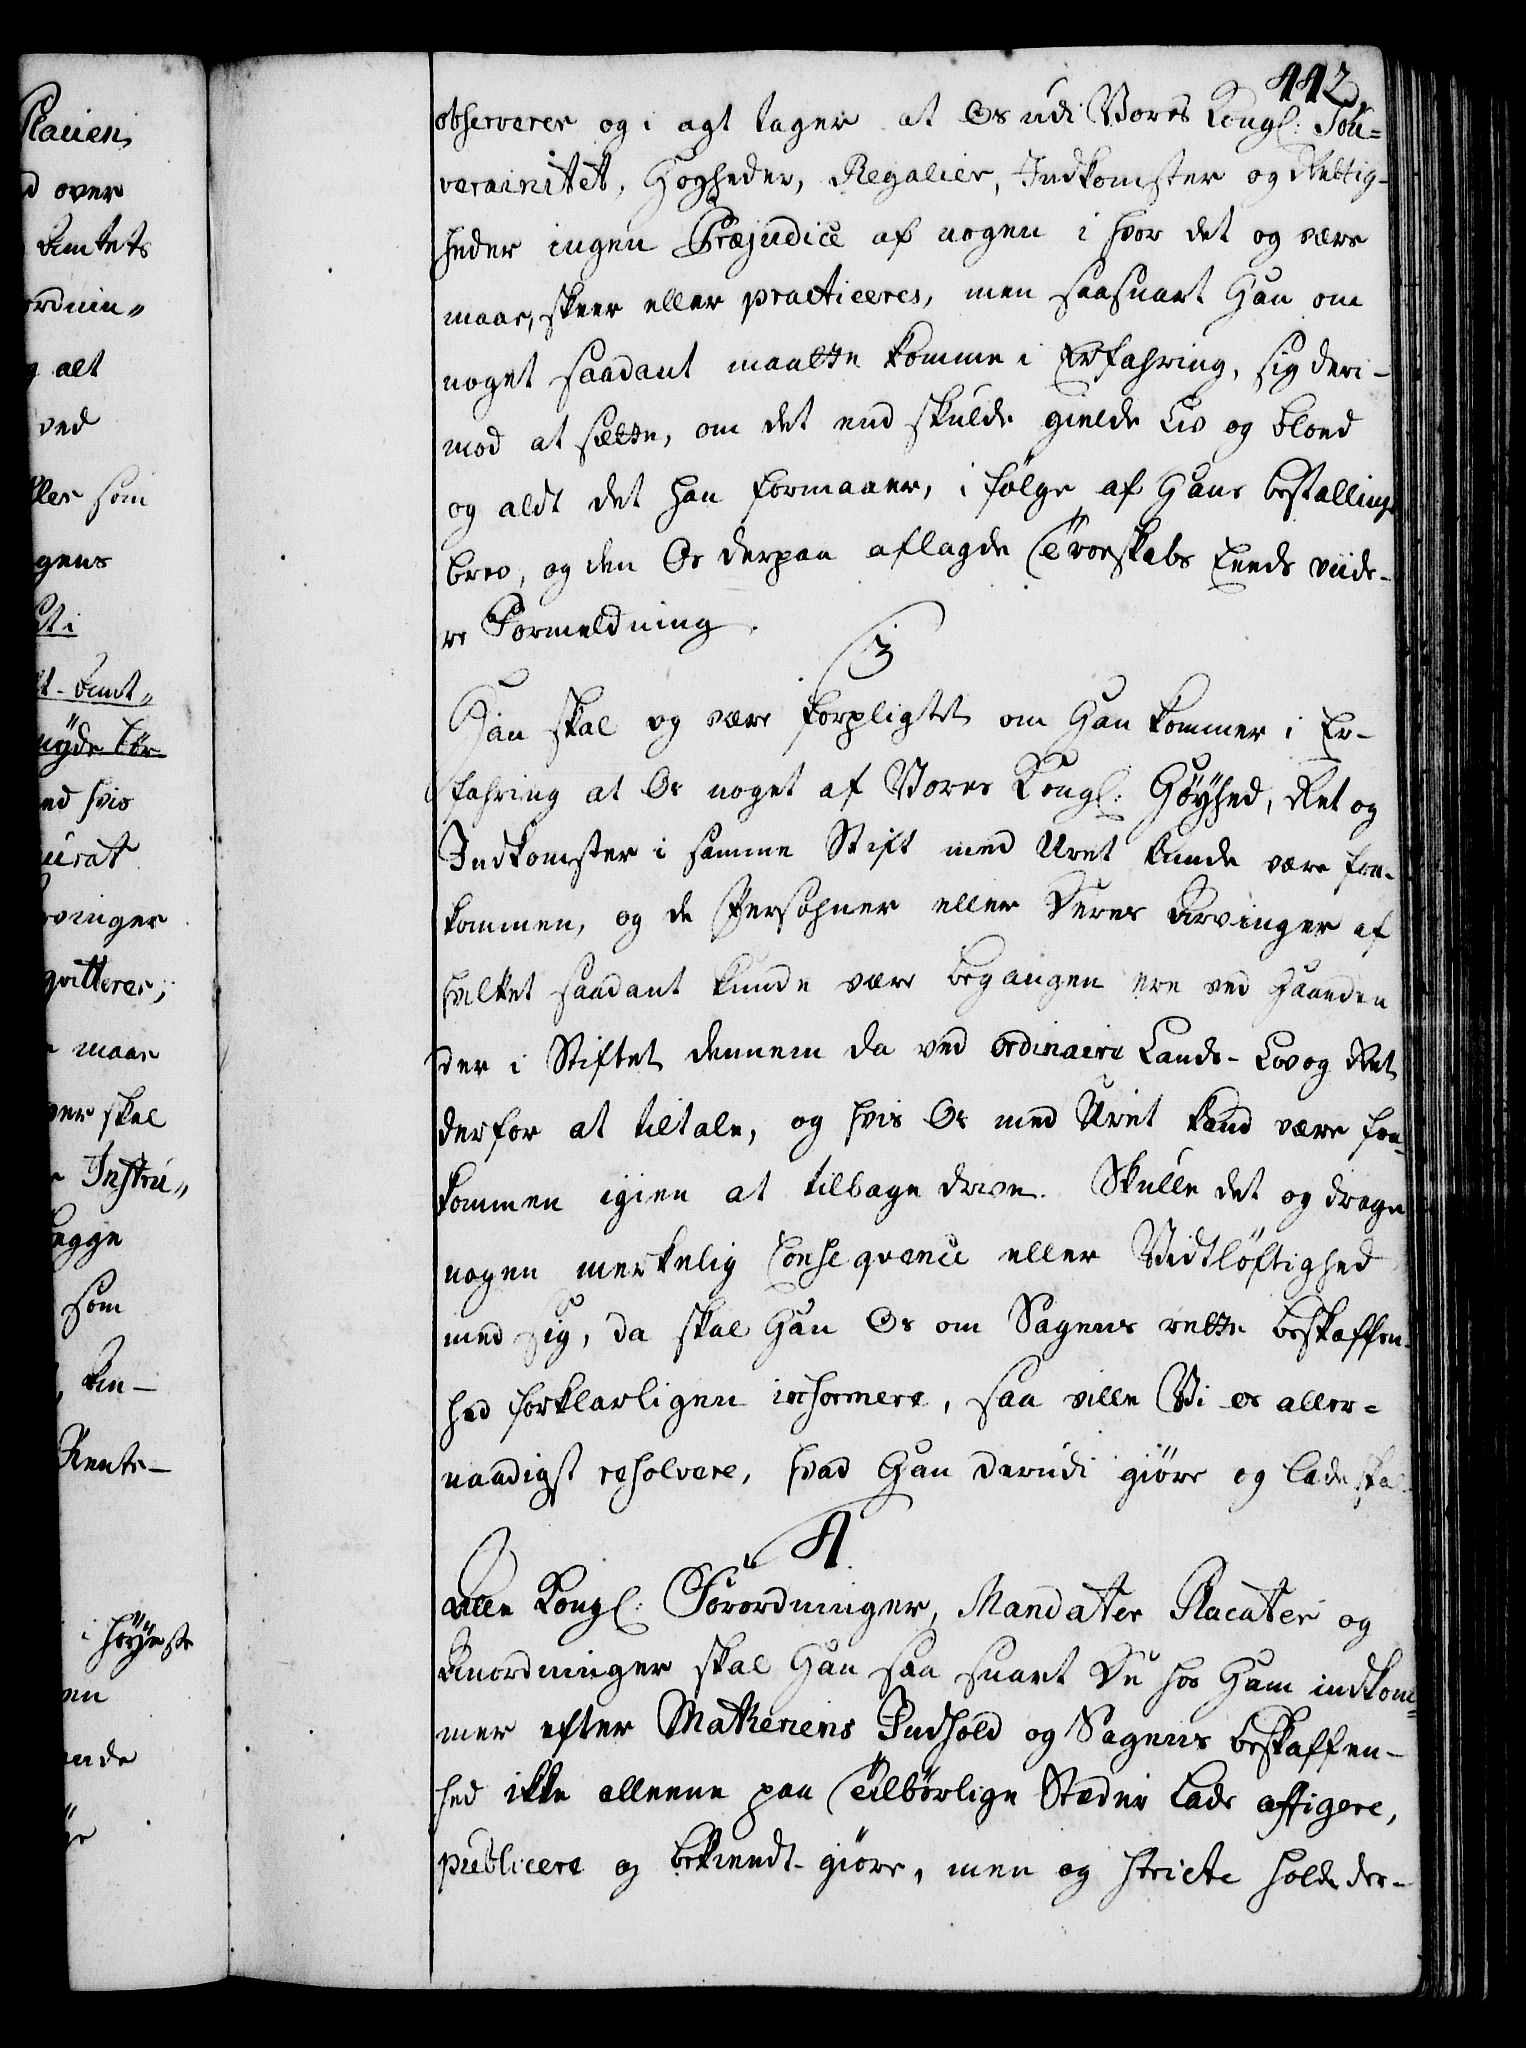 442.
Placien
d over
Amtets
ordnin„
g alt
ved
ller som
gens
t i
t-Amt„
nyde før
ed hvis
urat
rvinger
qvitteres;
maae
ver skal
Instru„
legge
som
, An-
Rente-
i høyeste
en
ende
observerer og i agt tager at Os udi Vores Kongl: Sou=
verainitet, Høgheder, Regalier, Indkomster og Rettig-
heder ingen Præjudice af nogen i hvor det og være
maae, skeer eller practiceres, men saasnart Han om
noget saadant maatte komme i Erfahring, sig deri-
mod at sætte, om det end skulde gielde Liv og blod
og aldt det han formaaer, i følge af Hans bestallings
brev, og den Os derpaa aflagde Troeskabs Eeds viide-
re Formeldning.
3
Han skal og være forpligtet om Han kommer i Er-
fahring at Os noget af Vores Kongl: Høyhed, Ret og
Indkomster i samme Stift med Uret kunde være fra-
kommen, og de Persohner eller Deres Arvinger af
hvilket saadant kunde være begangen ere ved Haanden
der i Stiftet dennem da ved ordinaire Lands-Lov og Ret
derfor at tiltale, og hvis Os med Uret kand være fra-
kommen igien at tilbage drive. Skulle det og drage
nogen merkelig Conseqvence eller Vidtløftighed
med sig, da skal Han Os om Sagens rette beskaffen-
hed forklarligen informere, saa ville Vi os aller=
naadigst resolvere, hvad Han derudi giøre og lade skal.
4.
Alle Kongl: Forordninger, Mandater Placater og
Anordninger skal Han saa snart De hos Ham indkom=
mer efter Matheriens Indhold og Sagens beskaffen-
hed ikke alleene paa Tilbørlige Stæder lade affigere,
publicere og bekiendt-giøre, men og stricte holde der-